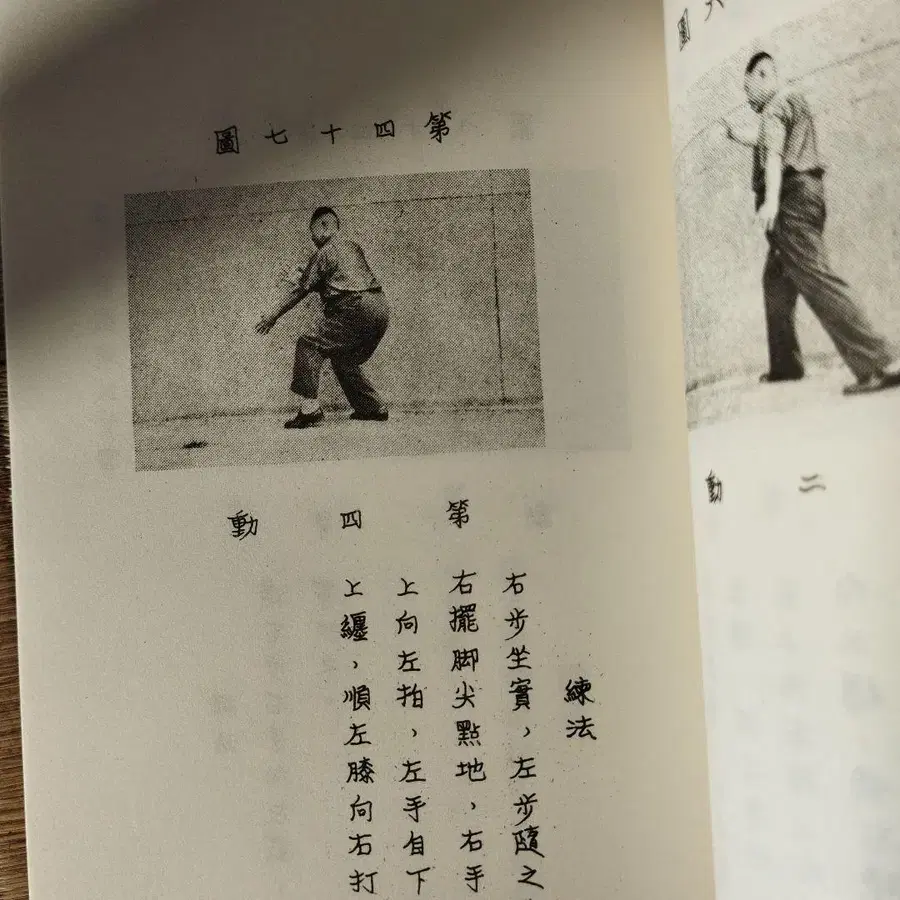 圖
二動
第四十七圖
第四動
練法
右步坐實，左步隨之
右擺脚尖點地，右手
上向左拍，左手自下
上纏，順左膝向右打